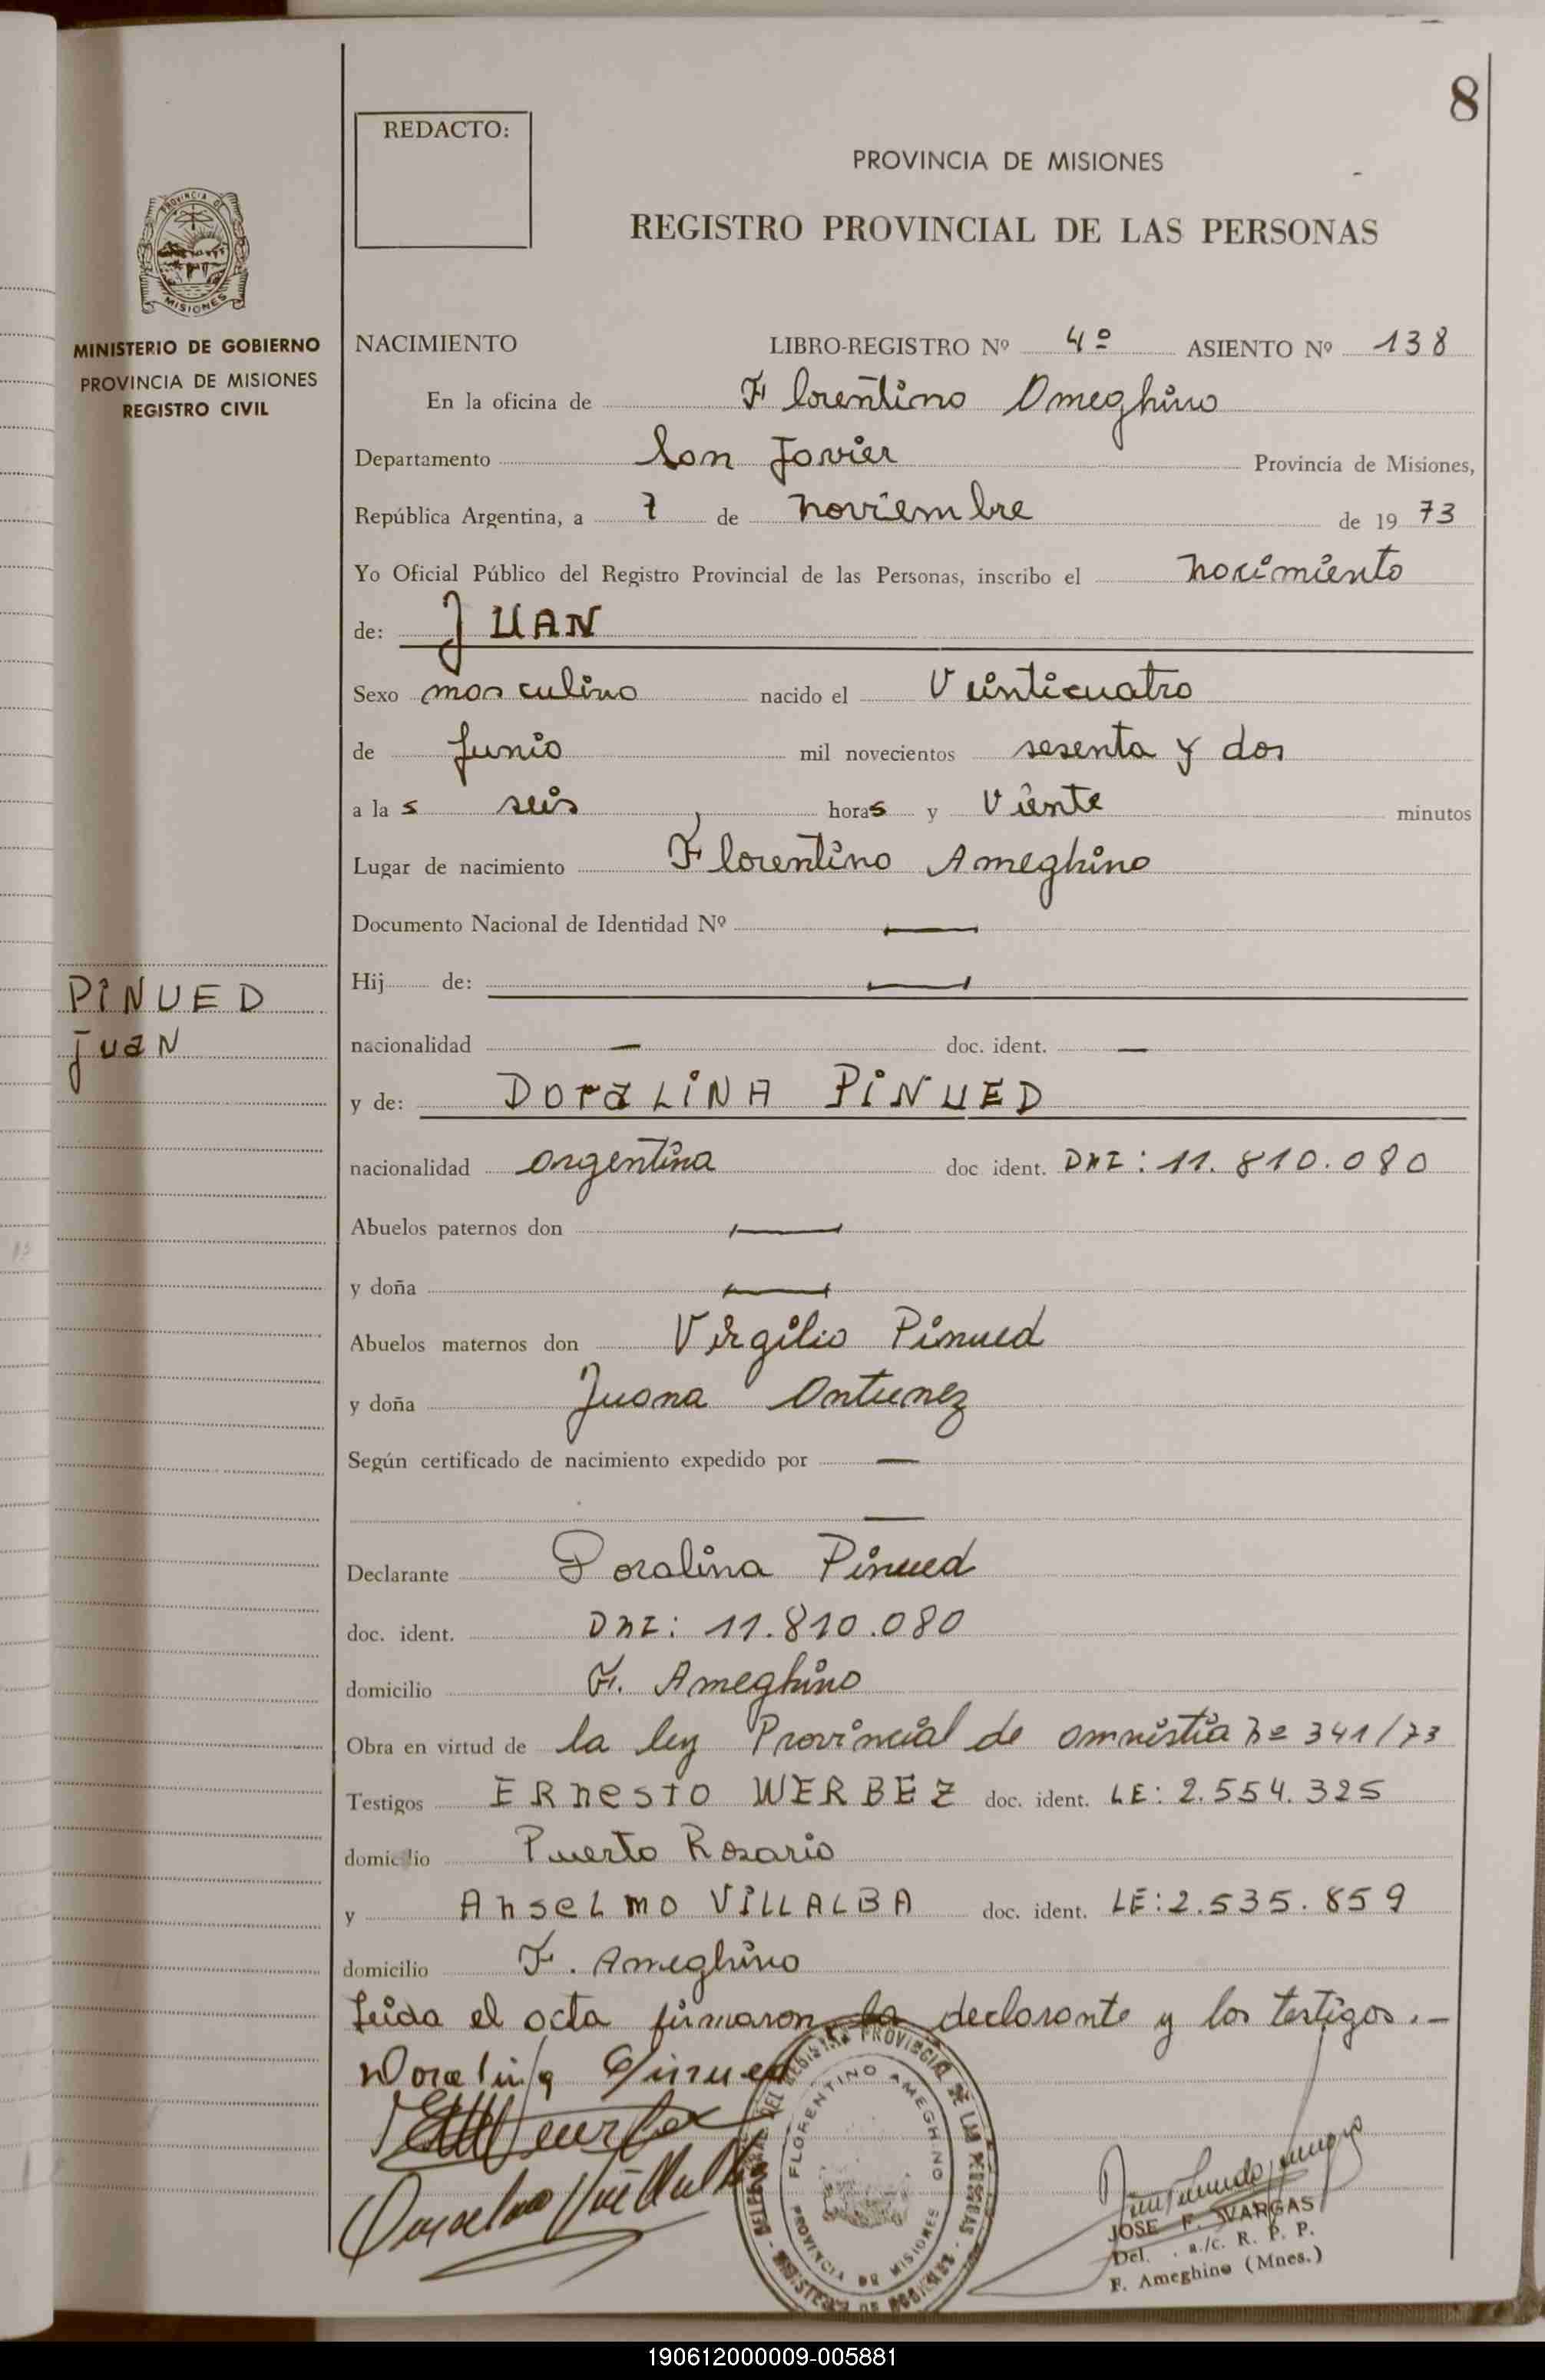 8
REDACTO:
PROVINCIA DE MISIONES
REGISTRO PROVINCIAL DE LAS PERSONAS
PROVINCIA DE
MISIONES
MINISTERIO DE GOBIERNO
PROVINCIA DE MISIONES
REGISTRO CIVIL
NACIMIENTO LIBRO-REGISTRO Nº 4º ASIENTO Nº 138
En la oficina de Florentino Ameghino
Departamento San Javier Provincia de Misiones,
República Argentina, a 7 de noviembre de 1973
Yo Oficial Público del Registro Provincial de las Personas, inscribo el nacimiento
de: JUAN
Sexo masculino nacido el Veinticuatro
de Junio mil novecientos sesenta y dos
a las seis horas y Veinte minutos
Lugar de nacimiento Florentino Ameghino
Documento Nacional de Identidad Nº —
Hij de: —
PINUED
Juan
nacionalidad — doc. ident. —
y de: DORALINA PINUED
nacionalidad argentina doc ident. DNI: 11.810.080
Abuelos paternos don —
y doña —
Abuelos maternos don Virgilio Pinued
y doña Juana Antunez
Según certificado de nacimiento expedido por —
—
Declarante Doralina Pinued
doc. ident. DNI: 11.810.080
domicilio F. Ameghino
Obra en virtud de la ley Provincial de amnistia nº 341/73
Testigos ERNESTO WERBEZ doc. ident. LE: 2.554.325
domicilio Puerto Rosario
y ANSELMO VILLALBA doc. ident. LE: 2.535.859
domicilio F. Ameghino
Leida el acta firmaron la declarante y los testigos.-
Doralina Pinued
Anselmo Villalba
FLORENTINO AMEGHINO
PROVINCIA DE MISIONES
JOSE F. VARGAS
Del. a/c. R. P. P.
F. Ameghino (Mnes.)
190612000009-005881